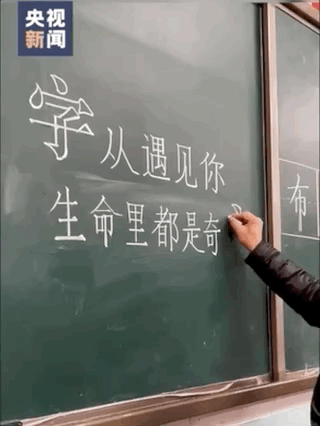 央视
新闻
字从遇见你
生命里都是奇
布